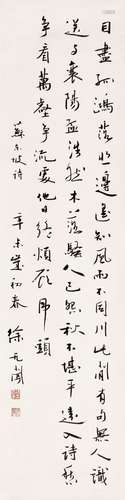 目盡孤鴻落照邊遙知風雨不同川此間有句無人識
送與襄陽孟浩然木落騷人已怨秋不堪平遠發詩愁
要看萬壑爭流處他日終煩顧虎頭
蘇東坡詩 辛未歲初春 徐无聞